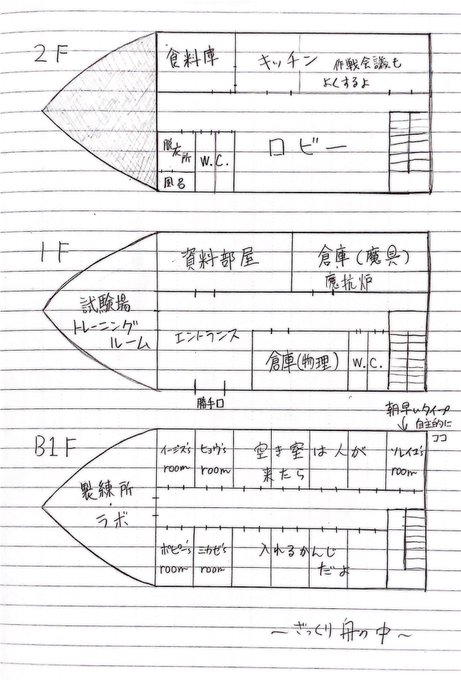 2F
食料庫
キッチン 作戦会議も
よくするよ
脱衣所
W.C.
ロビー
風呂
1F
資料部屋
倉庫(魔具)
魔抗炉
試験場
トレーニング
ルーム
エントランス
倉庫(物理)
W.C.
勝手口
朝早いタイプ
自主的に
ココ
B1F
イージス's
room
ヒョウ's
room
空き室は人が
来たら
ソレイユ's
room
製練所
・
ラボ
ポピー's
room
ミカゼ's
room
入れるかんじ
だよ
〜ざっくり舟の中〜